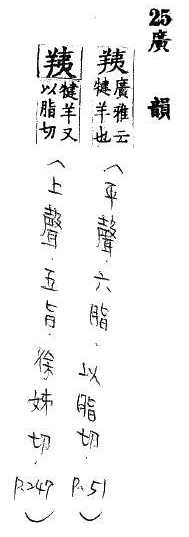 25廣韻
羠廣雅云犍羊也(平聲.六脂.以脂切.P.51)
羠犍羊又以脂切(上聲.五旨.徐姊切.P.247)